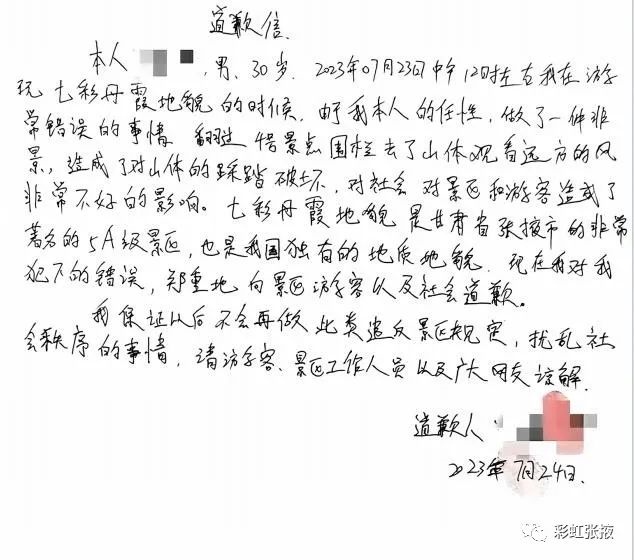 道歉信
本人 ，男，30岁．2023年07月23日中午12时左右我在游
玩七彩丹霞地貌的时候．由于我本人的任性，做了一件非
常错误的事情 翻过 景点围栏去了山体观看远方的风
景，造成了对山体的踩踏破坏，对社会 对景区和游客造成了
非常不好的影响。七彩丹霞地貌是甘肃省张掖市的非常
著名的5A级景区，也是我国独有的地质地貌．现在我对我
犯下的错误，郑重地向景区游客以及社会道歉。
我保证以后不会再做此类违反景区规定，扰乱社
会秩序的事情，请游客、景区工作人员以及广大网友谅解．
道歉人
2023年7月24日．
彩虹张掖